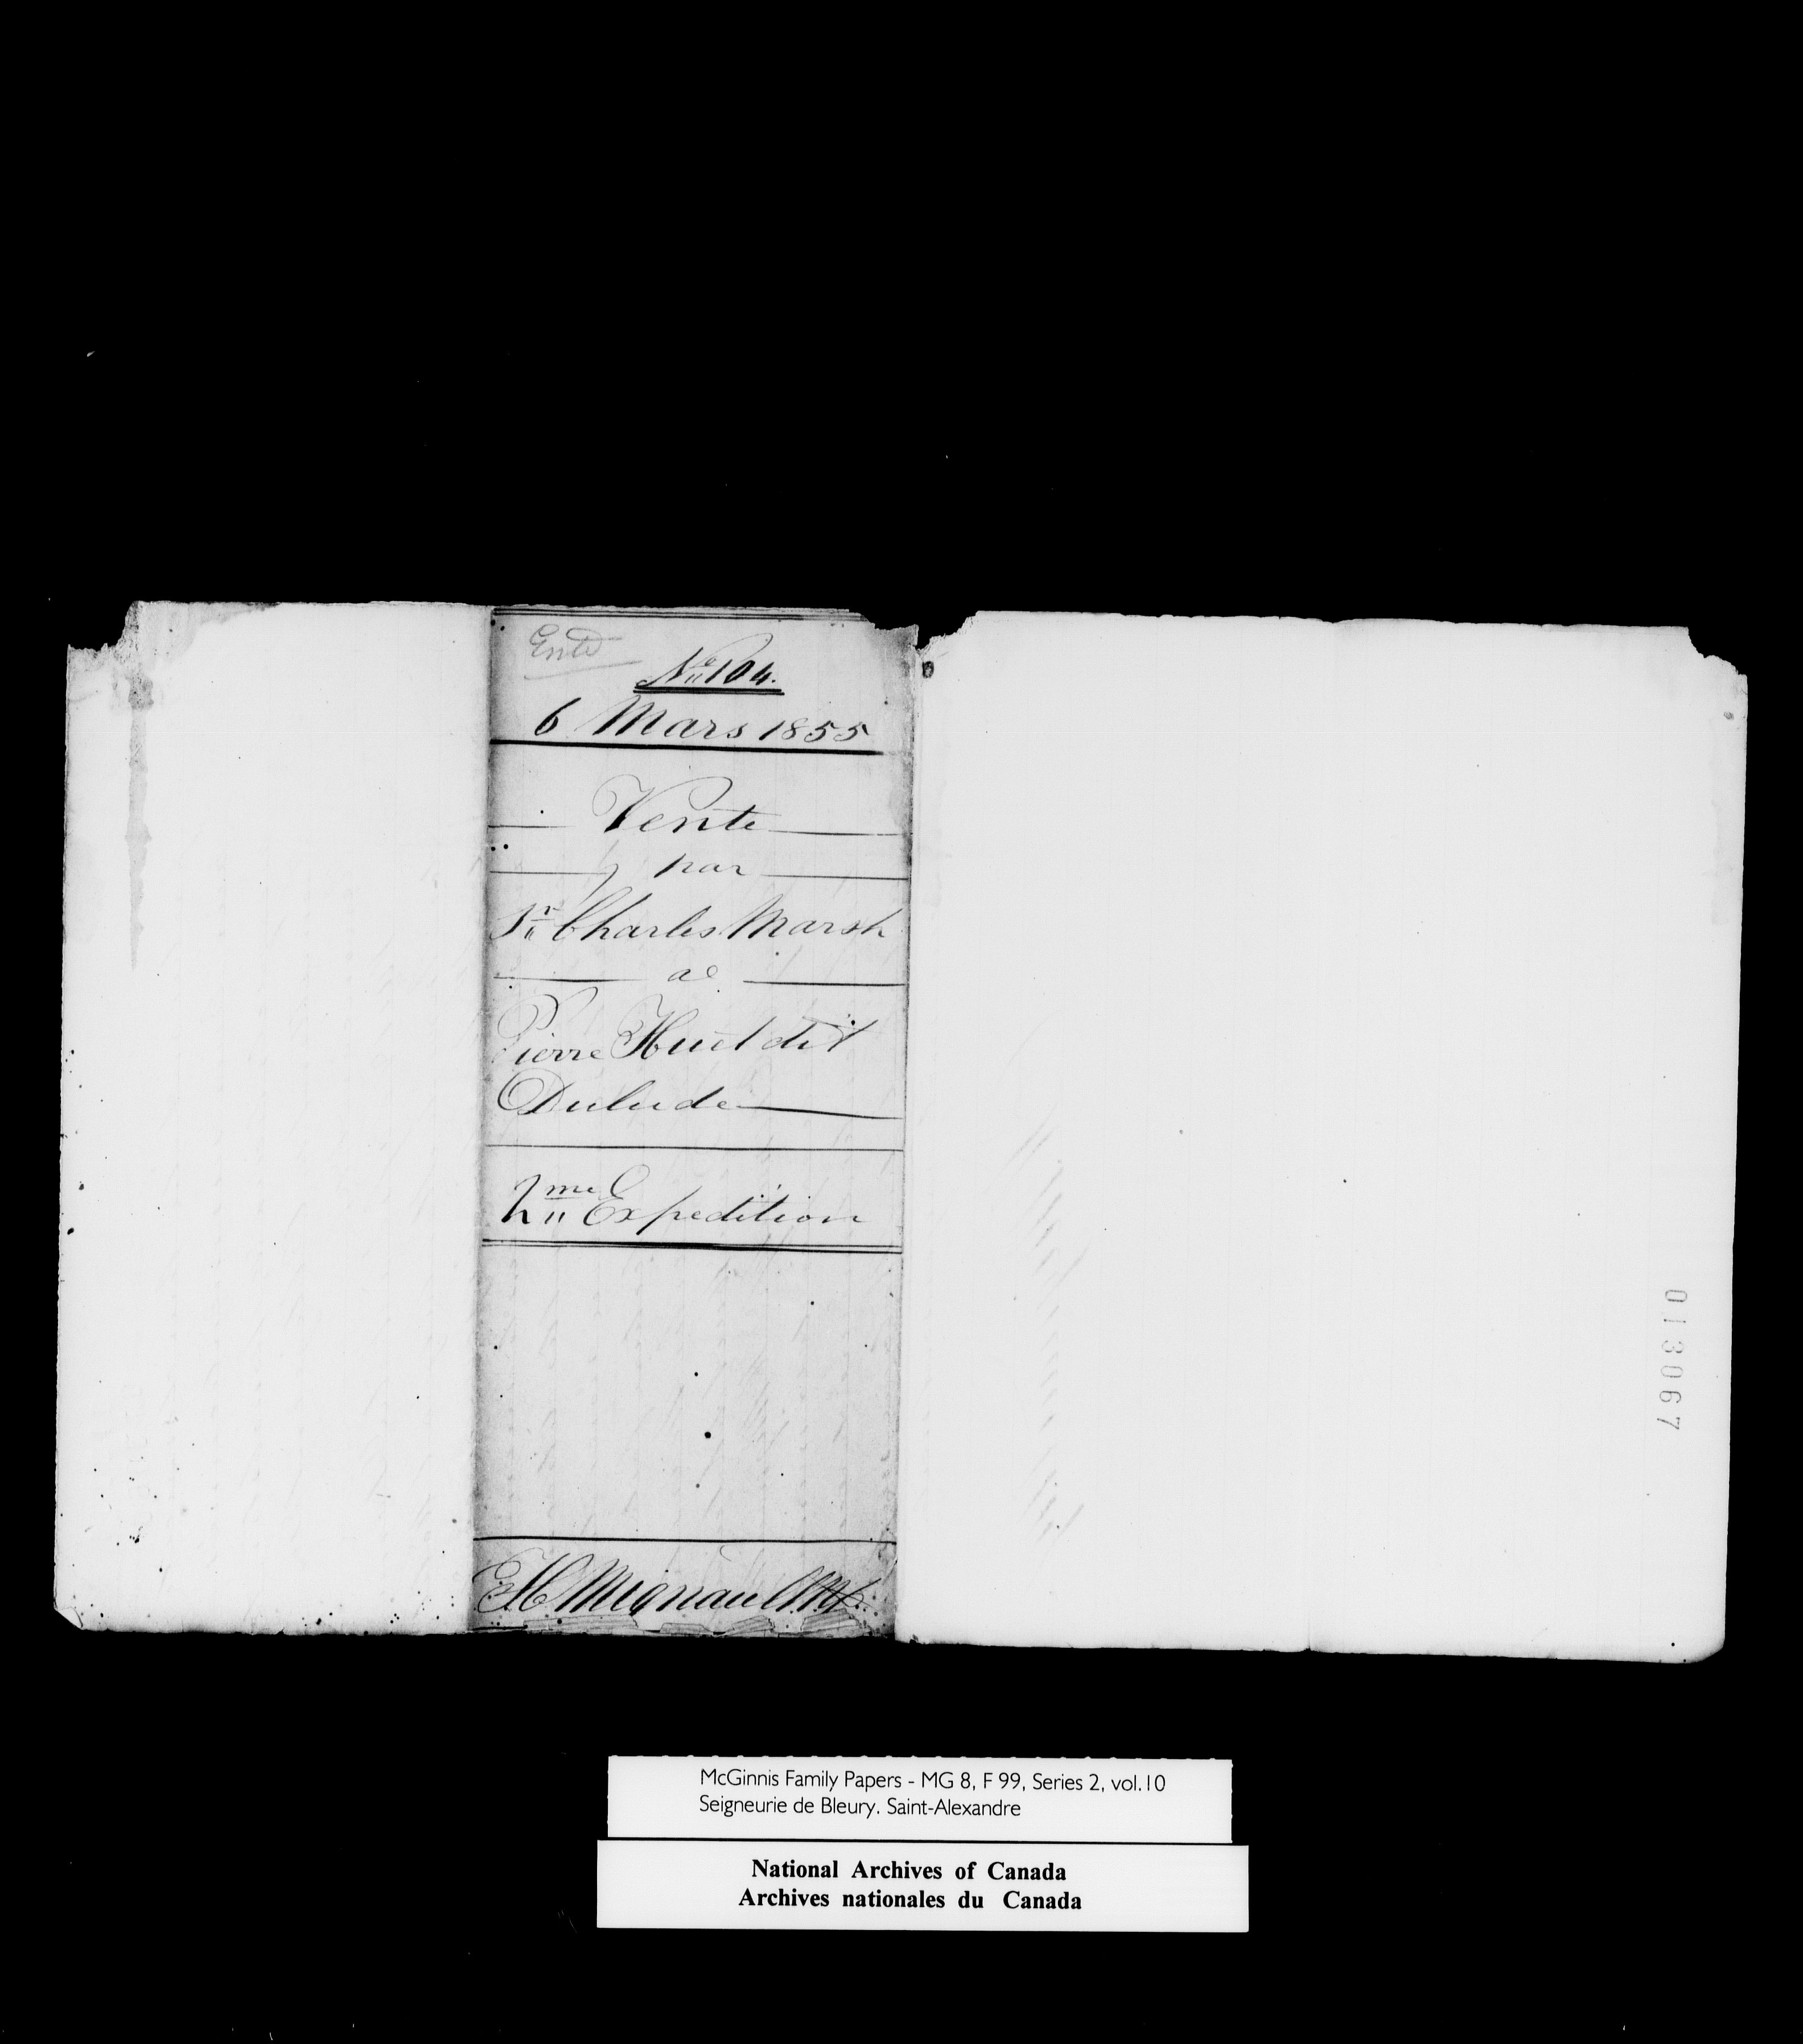 Entd
No 104.
6 Mars 1855
Vente
par
Sr Charles Marsh
a
Pierre Huet dit
Dulude
2me Expedition
E H Mignault N.P.
013067
McGinnis Family Papers - MG 8, F 99, Series 2, vol.10
Seigneurie de Bleury. Saint-Alexandre
National Archives of Canada
Archives nationales du Canada